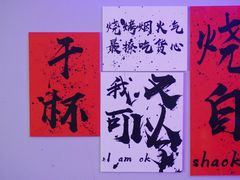 干
杯
烧烤烟火气
最撩吃货心
我又
可以
I am ok
烧
shaok